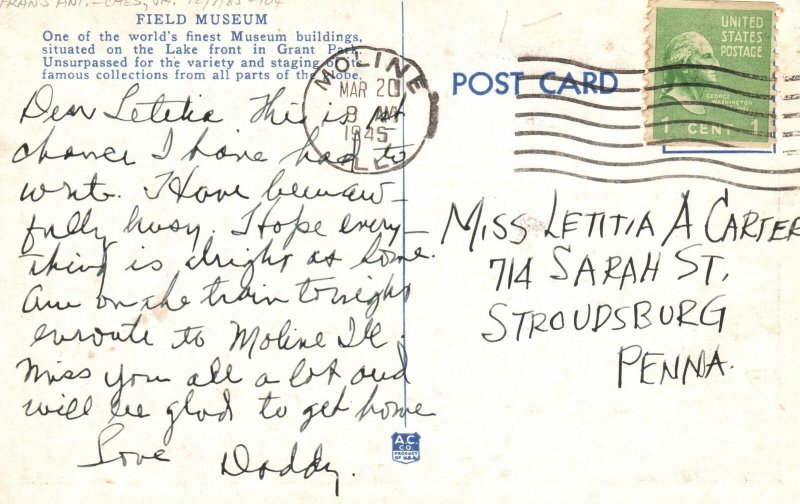 FIELD MUSEUM
One of the world's finest Museum buildings,
situated on the Lake front in Grant Park.
Unsurpassed for the variety and staging of its
famous collections from all parts of the Globe.
Dear Letitia This is 1st
chance I have had to
write. I Have been aw-
fully busy. I Hope every-
thing is alright at home.
Am on the train tonight
enroute to Moline Ill.
Miss you all a lot and
will be glad to get home
Love Daddy.
MOLINE
MAR 20
8 AM
1945
ILL.
POST CARD
UNITED
STATES
POSTAGE
GEORGE
WASHINGTON
1 CENT 1
MISS LETITIA A CARTER
714 SARAH ST.
STROUDSBURG
PENNA.
A.C.
CO
PRODUCT
OF U.S.A.